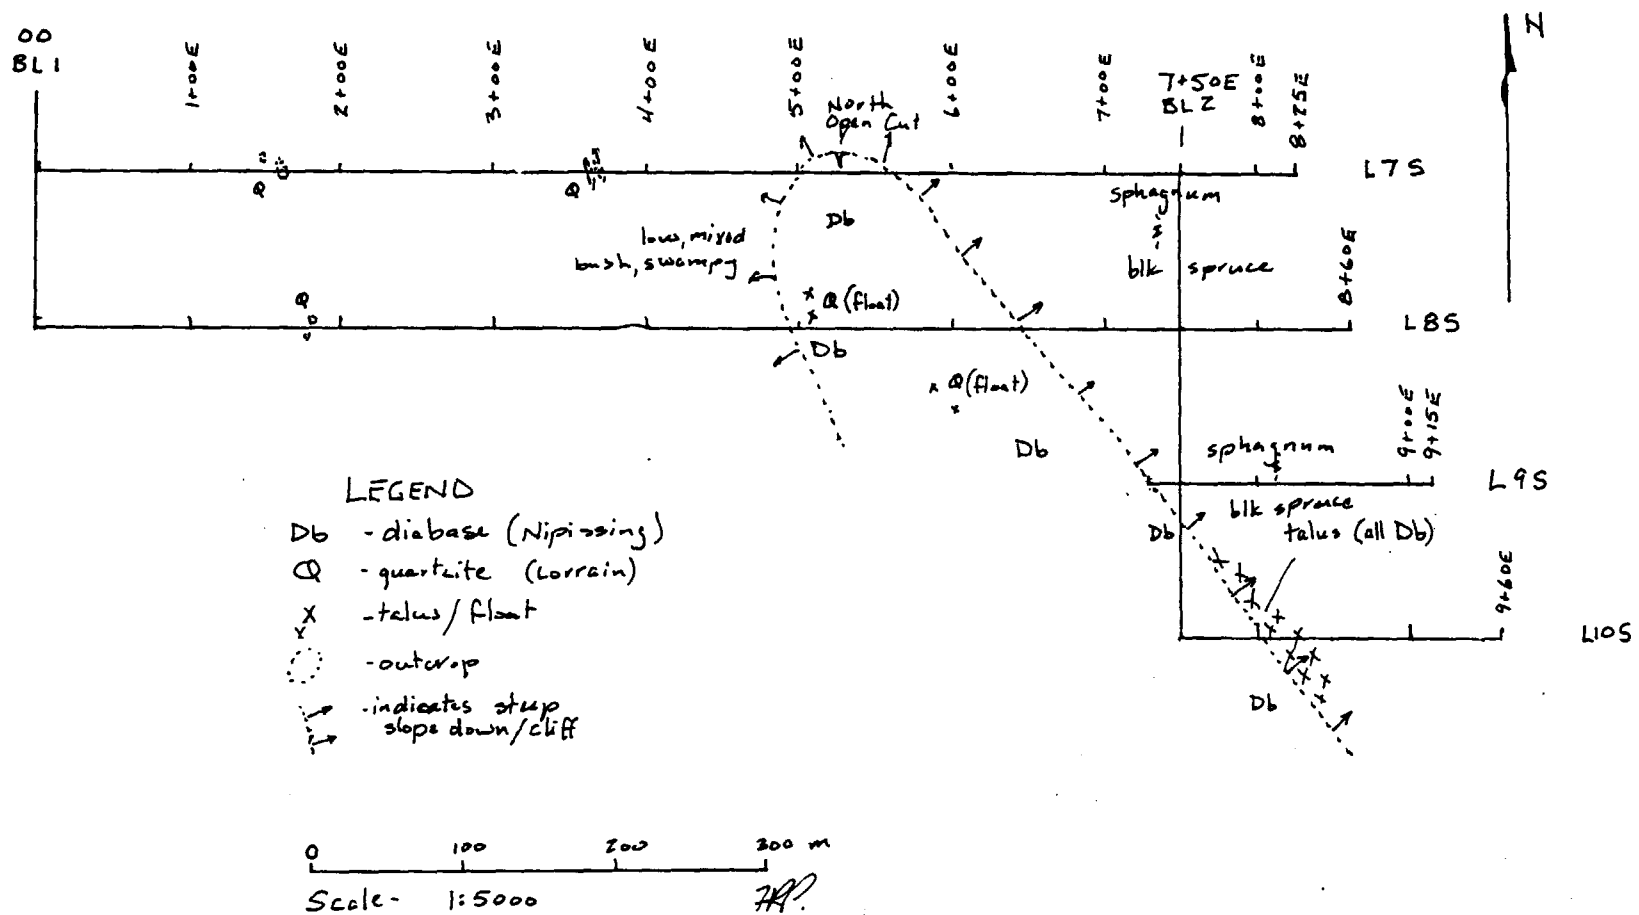 00
BL1
1+00E
2+00E
3+00E
4+00E
5+00E
6+00E
7+00E
7+50E
BL2
8+00E
8+25E
N
North
Open Cut
L7S
Q
Q
sphagnum
Db
low, mixed
bush, swampy
blk spruce
8+60E
Q
Q (float)
L8S
Db
Q (float)
Db
9+00E
9+15E
sphagnum
L9S
blk spruce
Db
talus (all Db)
9+60E
L10S
Db
LEGEND
Db - diabase (Nipissing)
Q - quartzite (Lorrain)
X
x
- talus/float
- outcrop
- indicates steep
slope down/cliff
0 100 200 300 m
Scale - 1:5000